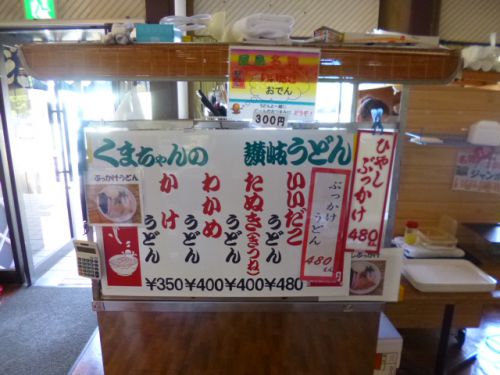 おでん
300円
くまちゃんの 讃岐うどん
ぶっかけうどん
かけ うどん
わかめ うどん
たぬき(きつね) うどん
いいだこ うどん
¥350 ¥400 ¥400 ¥480
ぶっかけ
うどん
480
ひやし
ぶっかけ
480